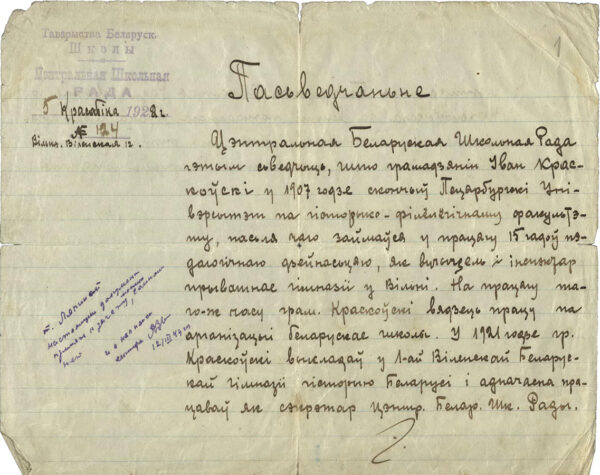 Таварыства Беларуск.
Школы
Центральная Школьная
РАДА
5 Красавіка 1922 г.
№ 124
Вільня, Віленская 12.
1
Пасьведчаньне
Цэнтральная Беларуская Школьная Рада
гэтым сьведчыць, што грамадзянін Іван Крас-
коўскі у 1907 годзе скончыў Пецярбургскі Уні-
вэрсытэт па гісторыко-філёлёгічнаму факультэ-
ту, пасьля чаго займаўся у працягу 15 гадоў пэ-
дагогічнаю дзейнасьцю, як вучыцель і інспэктар
прыватнае гімназіі у Вільні. На працягу та-
го-ж часу грам. Краскоўскі вядзець працу па
арганізацыі беларускае школы. У 1921 годзе гр.
Краскоўскі выкладаў у 1-ай Віленскай Беларус-
кай гімназіі гісторыю Беларусі і адначасна пра-
цаваў як сэкрэтар Цэнтр. Белар. Шк. Рады.
настоящий документ
12/III 47 г.